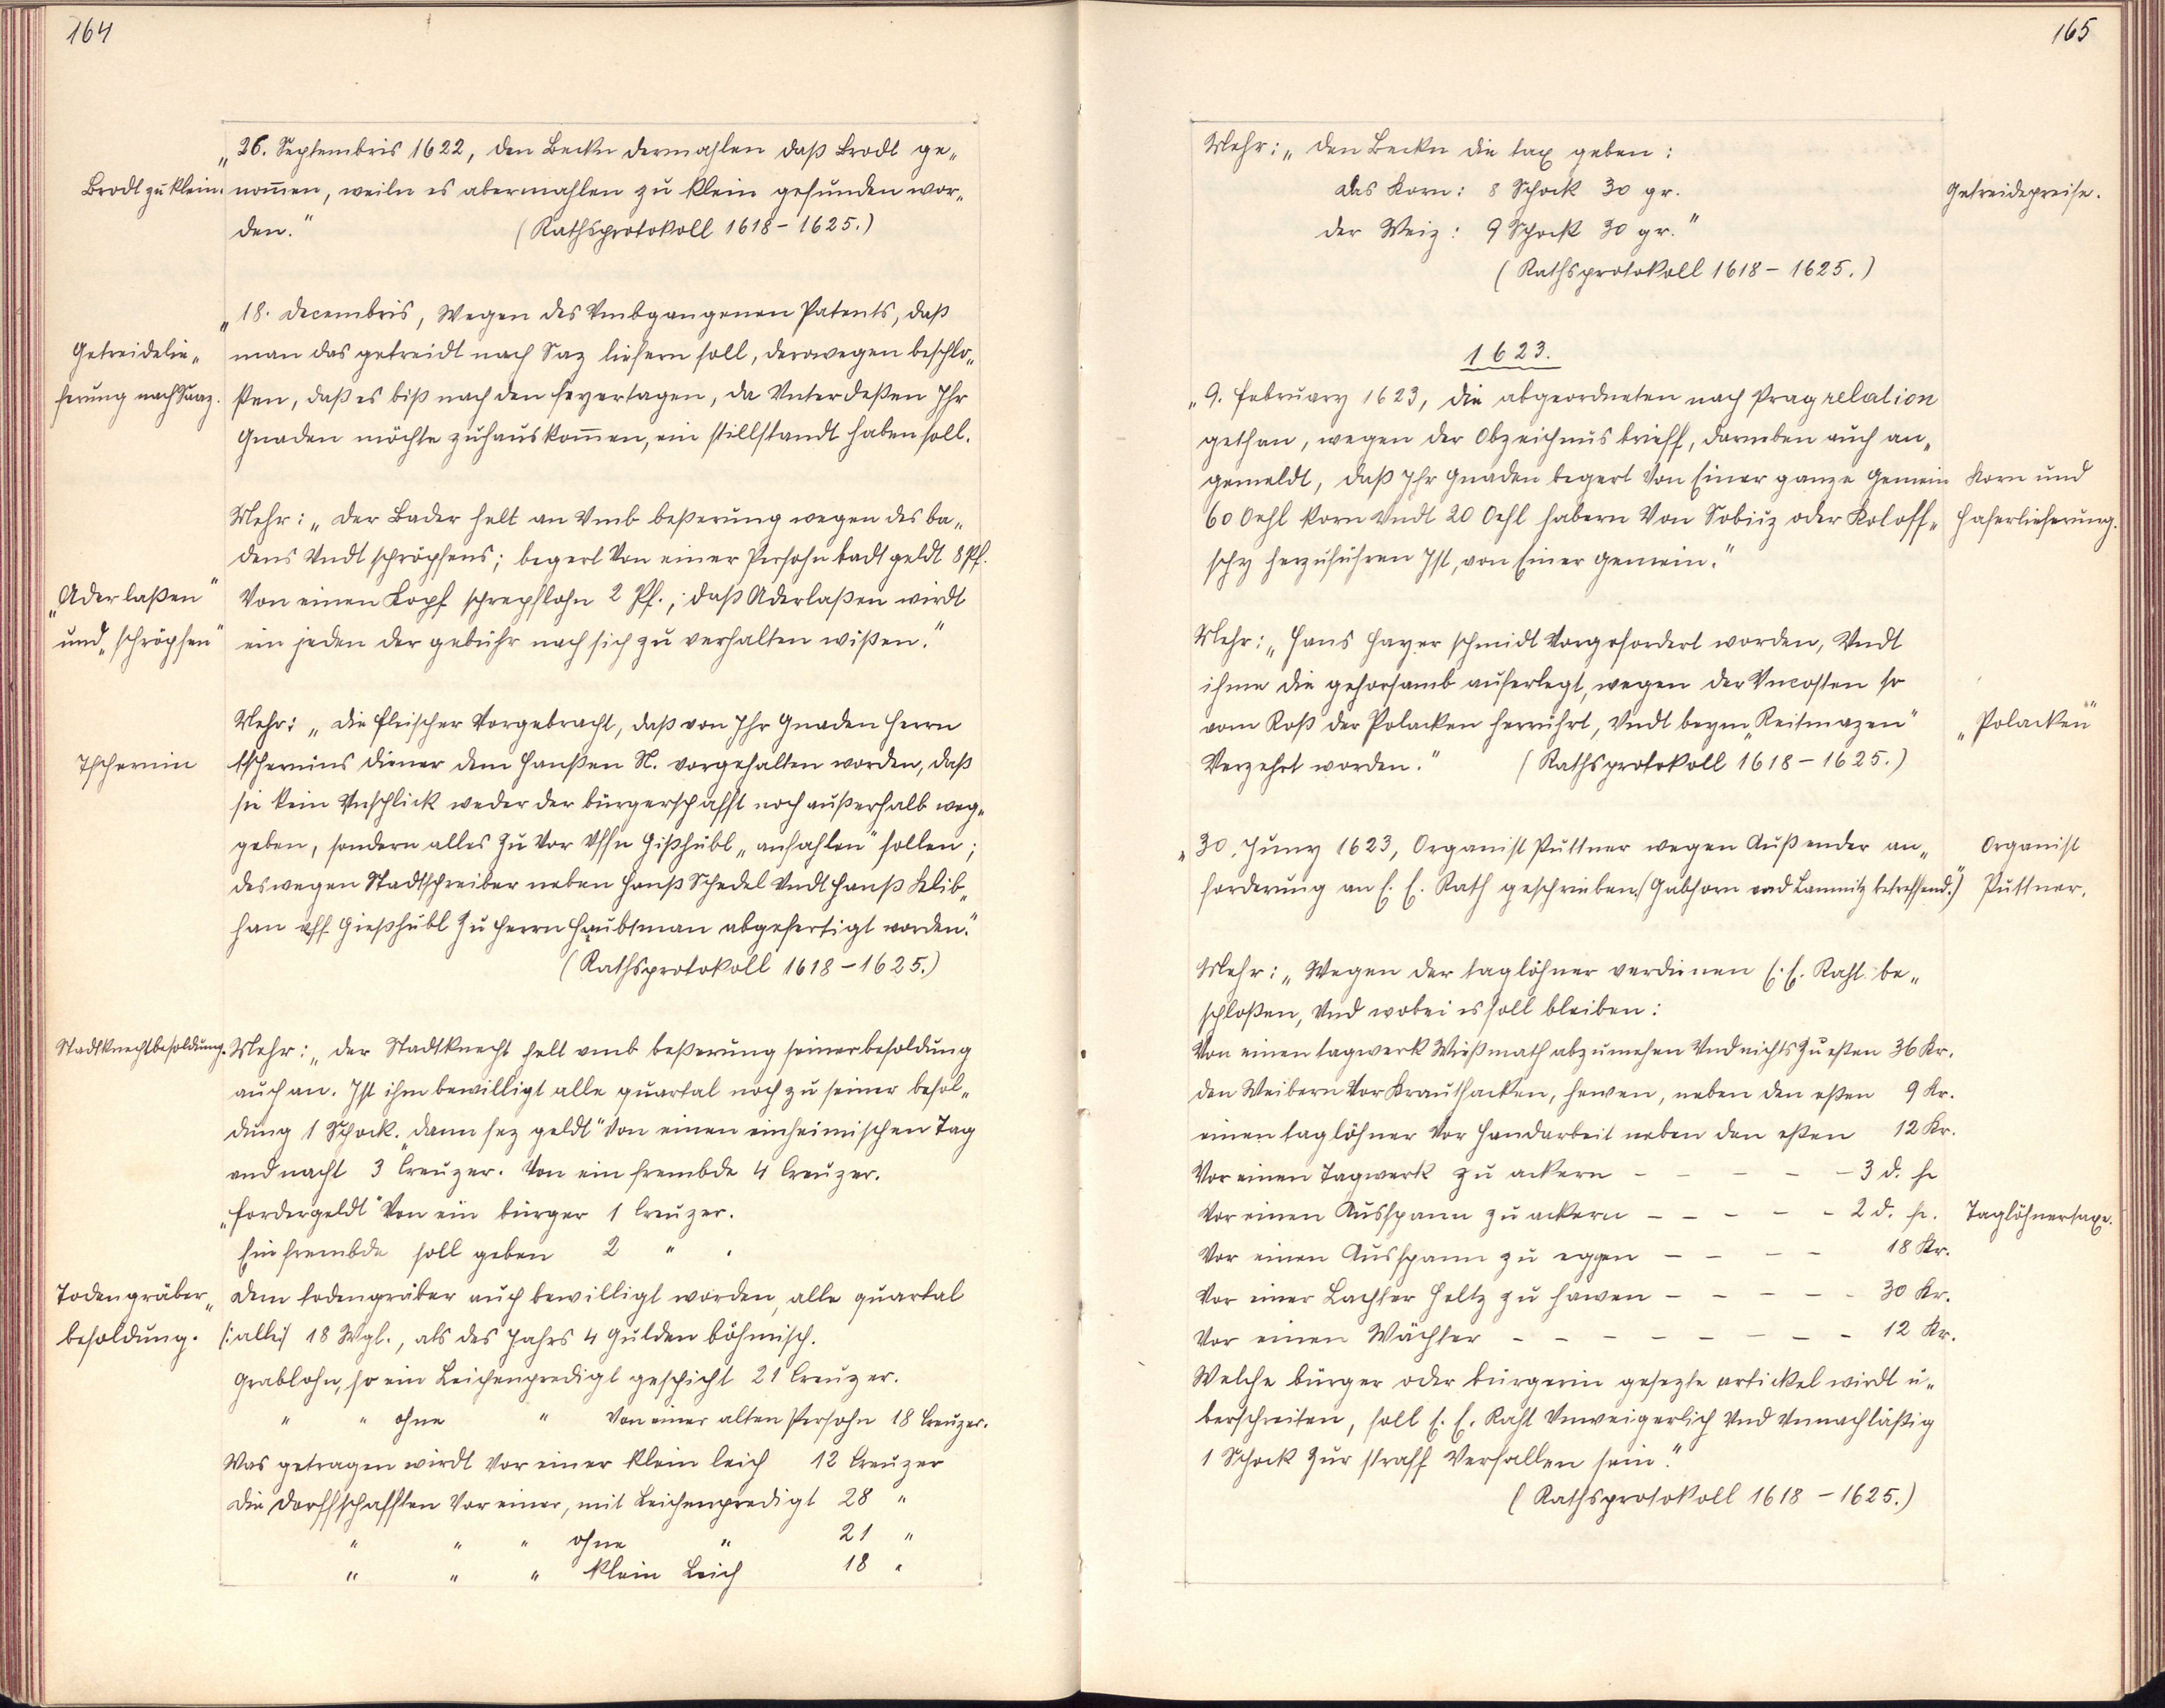 164
„26. Septembris 1622, den Becken dermahlen daß brodt ge„
Brodt zu klein.
nom̅en, weiln es abermahlen zu klein gefunden wor„
den." (Rathsprotokoll 1618 - 1625.)
„18. Decembris, Wegen des Vmbgangenen Patents, daß
Getreidelie„
man das getreidt nach Saz liefern soll, derowegen beschlo„
ferung nach Saaz.
ßen, daß es biß nach den feyertagen, da Vnterdeßen Ihr
Gnaden möchte zuhaus kom̅en, ein stillstandt haben soll.
Mehr: „Der Bader helt an Vmb beßerung wegen des ba„
dens Vndt schröpfens; begert Von einer Persohn badt geldt 8 Pf.
„Aderlaßen"
Von einen Kopf schrepflohn 2 Pf.; daß Aderlaßen wirdt
und „schröpfen"
ein jeden der gebühr nach sich zu verhalten wißen."
Mehr: „die fleischer Vorgebracht, daß von Ihr Gnaden Herrn
Tschernin
Tschernins diener dem Hanßen N. vorgehalten worden, daß
sie kein Vnschlick weder der bürgerschafft noch außerhalb weg„
geben, sondern alles Zu Vor Vffn Gißhübl „anfahlen" sollen;
deswegen Stadtschreiber neben Hanß Schedel Vndt Hanß Klib„
han vff Gießhübl Zu Herrn Haubtman abgefertigt worden."
(Rathsprotokoll 1618 - 1625.)
Stadtknechtbesoldung.
Mehr: „der Stadtknecht helt vmb beßerung seiner besoldung
auch an. Ist ihm bewilligt alle quartal noch zu seiner besol„
dung 1 Schock. dann „sez geldt" Von einen einheimischen Tag
vnd nacht 3 Creuzer. Von ein frembde 4 Creuzer.
„fordergeldt" Von ein bürger 1 Creuzer.
Ein frembde soll geben 2 " .
Todengräber„
dem todengräber auch bewilligt worden, alle quartal
besoldung.
/:alle:/ 18 Wgl., als des Jahrs 4 Gulden böhmisch.
Grablohn, so ein Leichenpredigt geschicht 21 Creuzer.
" " ohne " Von einer alten Persohn 18 Creuzer.
Was getragen wirdt Vor einer klein leich 12 Creuzer
die Dorffschafften Vor einer, mit Leichenpredigt 28 "
" " " ohne " 21 "
" " " klein Leich 18 "
165
Mehr: „den Becken die tax geben:
das Korn: 8 Schock 30 gr.
Getreidepreise.
der Weiz: 9 Schock 30 gr."
(Rathsprotokoll 1618 - 1625.)
1623.
„9. february 1623, die abgeordneten nach Prag relation
gethan, wegen der Obzeichnus brieff, darneben auch an„
gemeldt, daß Ihr Gnaden begert Von Einer ganze Gemein
Korn und
60 Vehl korn Vndt 20 Vehl habern Von Sobiuz oder Koloff„
Haferlieferung.
schy herzuführen Ist, von Einer Gemein."
Mehr: „Hans Hayer schmidt Vorgefordert worden, Vndt
ihme die gehorsamb auferlegt, wegen der Vncosten so
vom Roß der Polacken herrührt, Vndt beym „Reitmazen"
„Polacken"
Verzehrt worden." (Rathsprotokoll 1618 - 1625.)
„30. Juny 1623, Organist Puttner wegen Außender an„
Organist
forderung an E. E. Rath geschrieben. (Gabhorn und Lamnitz betreffend.)
Puttner.
Mehr: „Wegen der taglöhner verdienen E. E. Raht be„
schloßen, Vnd wobei es soll bleiben:
Von einen tagwerk Wießmath abzumehen Vnd nichts Zu eßen 36 Kr.
den Weibern Vor Krauthacken, hewen, neben den eßen 9 Kr.
einen taglöhner Vor Handarbeit neben den eßen 12 Kr.
Vor einen Tagwerk zu ackern - - - - - 3 d. fr
Vor einen Ausspann zu ackern - - - - - 2 d. fr.
Taglöhnertaxe.
Vor einen Ausspann zu eggen - - - - 18 Kr.
Vor einer Lachter Holtz zu hawen - - - - - 30 Kr.
Vor einen Wächter - - - - - - - - 12 Kr.
Welche bürger oder bürgerin gesezte artickel wirdt ü„
berschreiten, soll E. E. Raht Vnweigerlich Vnd Vnnachläßig
1 Schock Zur straff Verfallen sein."
(Rathsprotokoll 1618 - 1625.)